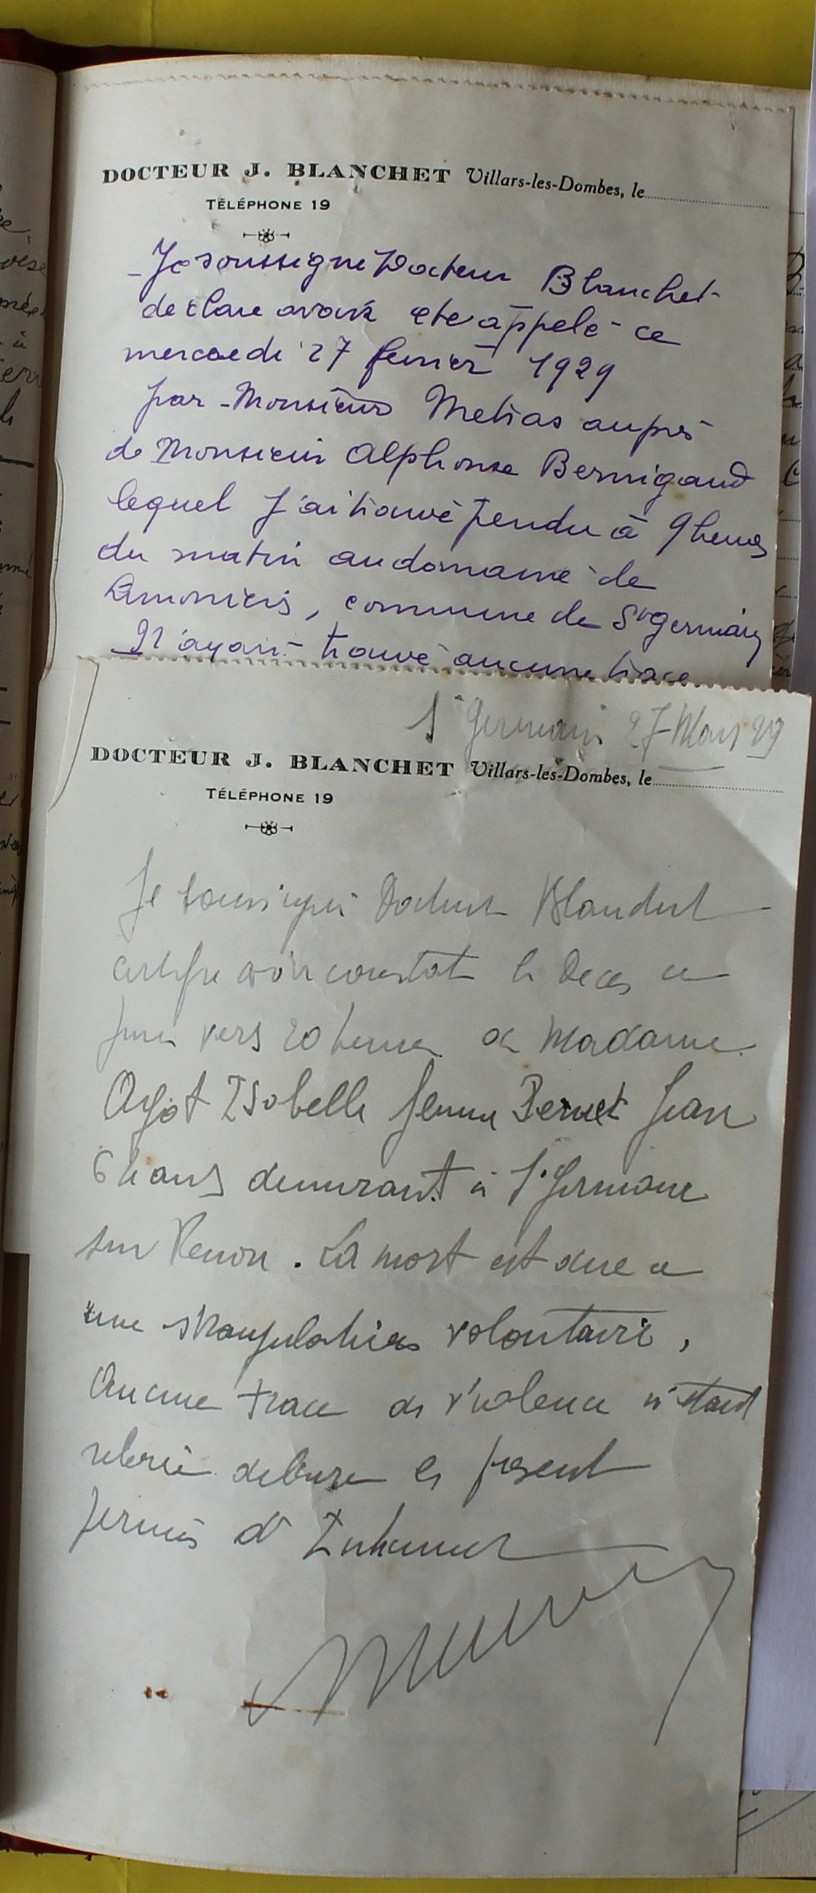 DOCTEUR J. BLANCHET Villars-les-Dombes, le
TÉLÉPHONE 19
Je soussigné Docteur Blanchet
declare avoir ete appelé ce
mercredi 27 fevrier 1929
par Monsieur Metras auprès
de Monsieur Alphonse Bernigaud
lequel j'ai trouvé pendu à 9 heures
du matin au domaine de
commune de St Germain
N'ayant trouvé aucune trace
St Germain 27 Mars 29
DOCTEUR J. BLANCHET Villars-les-Dombes, le
TÉLÉPHONE 19
Je soussigné Docteur Blanchet
certifie avoir constaté le Deces ce
jour vers 20 heures de Madame
Isabelle femme Jean
ans demeurant à St Germain
sur Renon. La mort est due a
une strangulation volontaire,
Aucune trace de violence n'étant
relevée delivre le present
permis d'Inhumer